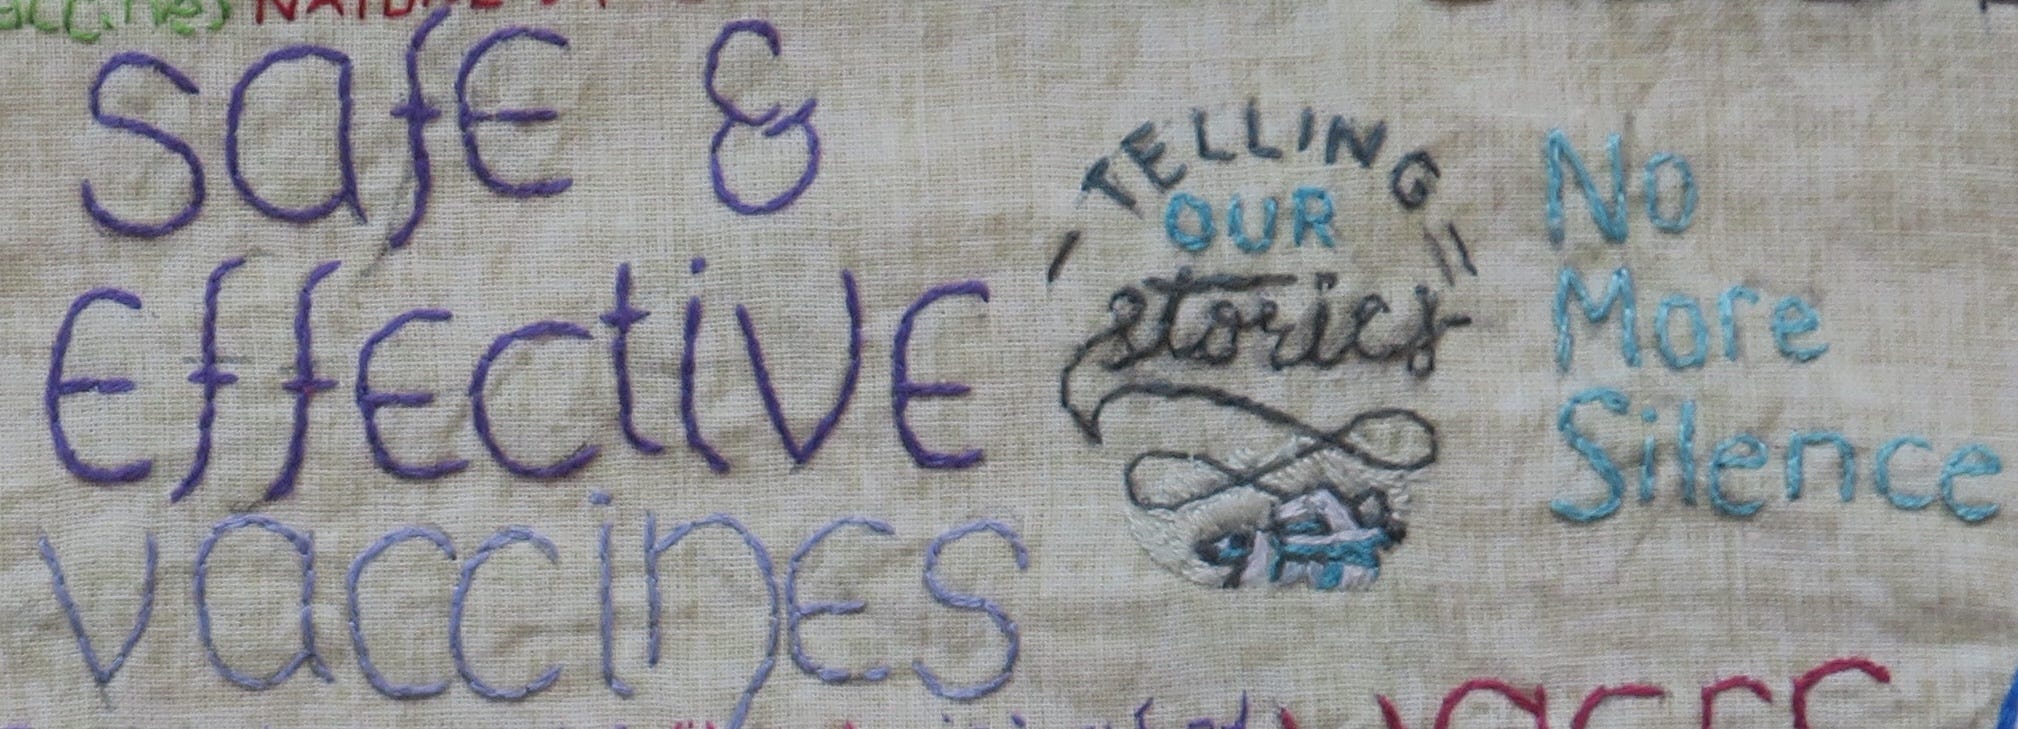 vaccines NATURE
safe &
effective
vaccines
TELLING
OUR
stories
No
More
Silence